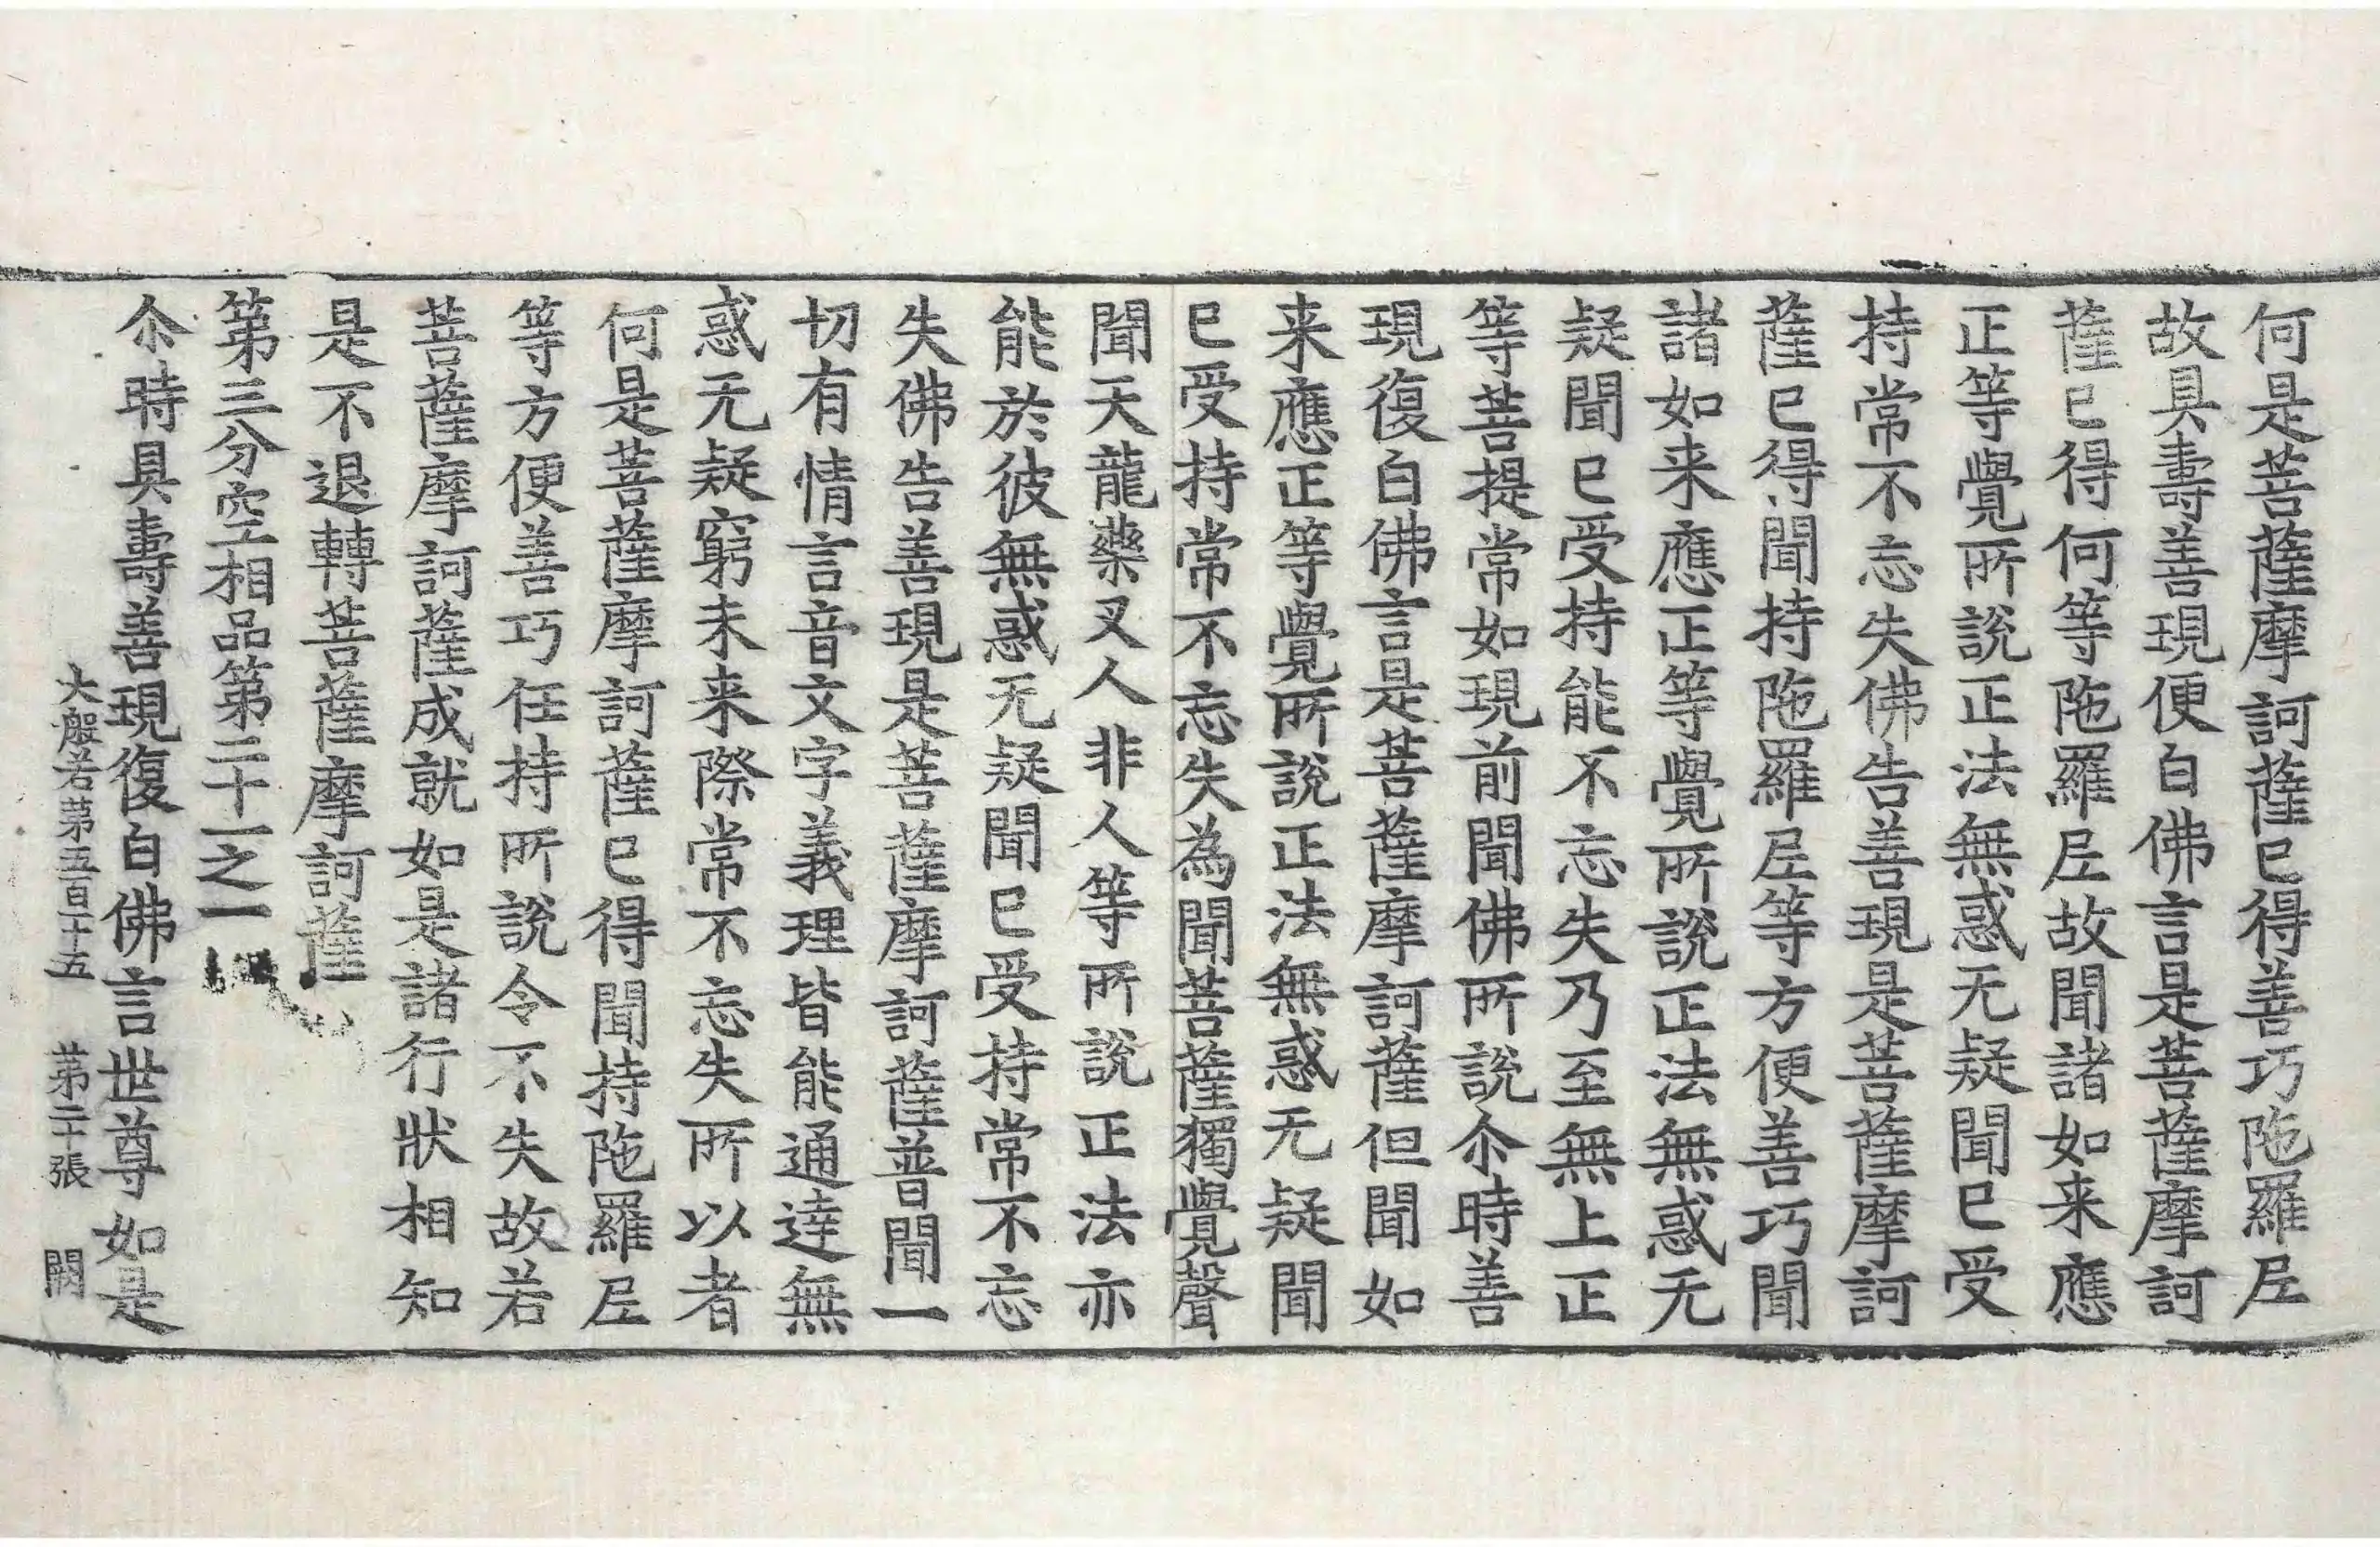 何是菩薩摩訶薩已得善巧陁羅尼
故具壽善現便白佛言是菩薩摩訶
薩已得何等陁羅尼故聞諸如来應
正等覺所說正法無惑无疑聞已受
持常不忘失佛告善現是菩薩摩訶
薩已得聞持陁羅尼等方便善巧聞
諸如来應正等覺所說正法無惑无
疑聞已受持能不忘失乃至無上正
等菩提常如現前聞佛所說尒時善
現復白佛言是菩薩摩訶薩但聞如
来應正等覺所說正法無惑无疑聞
已受持常不忘失為聞菩薩獨覺聲
聞天龍藥叉人非人等所說正法亦
能於彼無惑无疑聞已受持常不忘
失佛告善現是菩薩摩訶薩普聞一
切有情言音文字義理皆能通達無
惑无疑窮未来際常不忘失所以者
何是菩薩摩訶薩已得聞持陁羅尼
等方便善巧任持所說令不失故若
菩薩摩訶薩成就如是諸行狀相知
是不退轉菩薩摩訶薩
第三分空相品第二十一之一
尒時具壽善現復白佛言世尊如是
大般若第五百十五 第二十張 闕